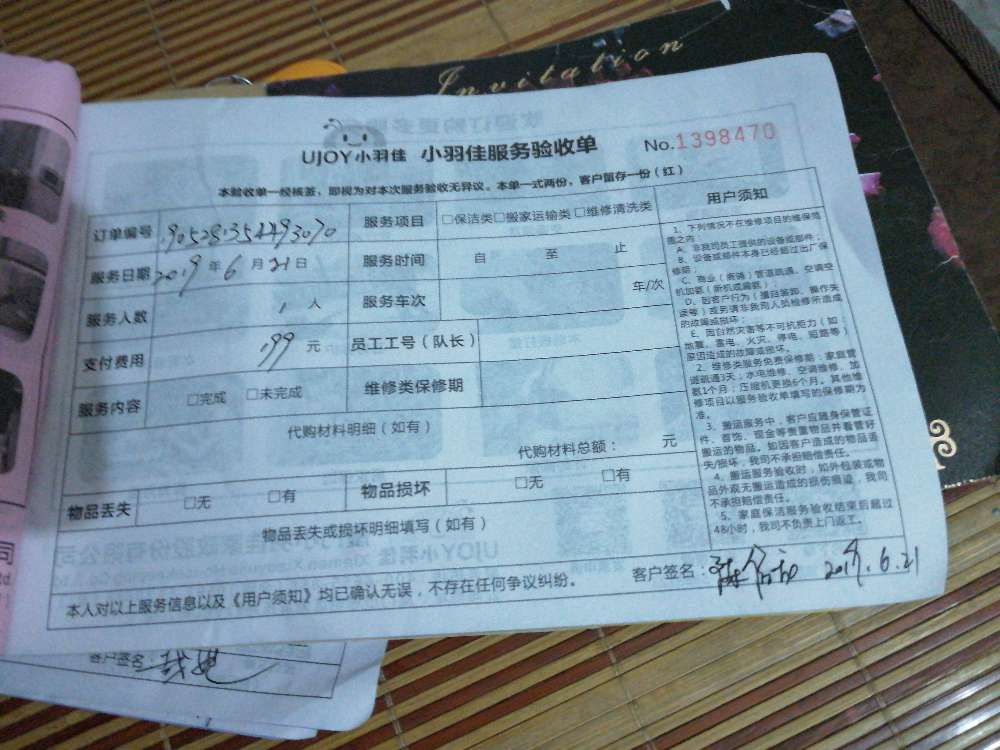 Invitation
UJOY小羽佳 小羽佳服务验收单 No.1398470
本验收单一经核签,即视为对本次服务验收无异议。本单一式两份,客户留存一份(红)
订单编号 服务项目 □保洁类□搬家运输类□维修清洗类
服务日期 2019年6月21日 服务时间 自 至 止
服务人数 1人 服务车次 车/次
支付费用 199元 员工工号(队长)
服务内容 □完成 □未完成 维修类保修期
代购材料明细(如有)
代购材料总额: 元
物品丢失 □无 □有 物品损坏 □无 □有
物品丢失或损坏明细填写(如有)
本人对以上服务信息以及《用户须知》均已确认无误,不存在任何争议纠纷。
客户签名: 2019.6.21
用户须知
1、下列情况不在维修项目的维保范
围之内:
A、非我司员工提供的设备或部件;
B、设备或部件本身已经超过出厂保
修期;
C、商业(商铺)管道疏通、空调空
机加氨(新机或漏氨);
D、因客户行为(擅自装卸、操作失
误等)或另请非我司人员检修所造成
的故障或损坏;
E、因自然灾害等不可抗拒力(如:
地震、雷电、火灾、停电、短路等)
原因造成的故障或损坏。
2、维修类服务免费保修期:家庭管
道疏通3天;水电维修、空调维修、加
氨1个月;压缩机更换6个月。其他维
修项目以服务验收单填写的保修期为
准。
3、搬运服务中,客户应随身保管证
件、首饰、现金等贵重物品并看管好
搬运的物品。如因客户造成的物品丢
失/损坏,我司不承担赔偿责任。
4、搬运服务验收时,如外包装或物
品外观无搬运造成的损伤痕迹,我司
不承担赔偿责任。
5、家庭保洁服务验收结束后超过
48小时,我司不负责上门返工。
客户签名
司